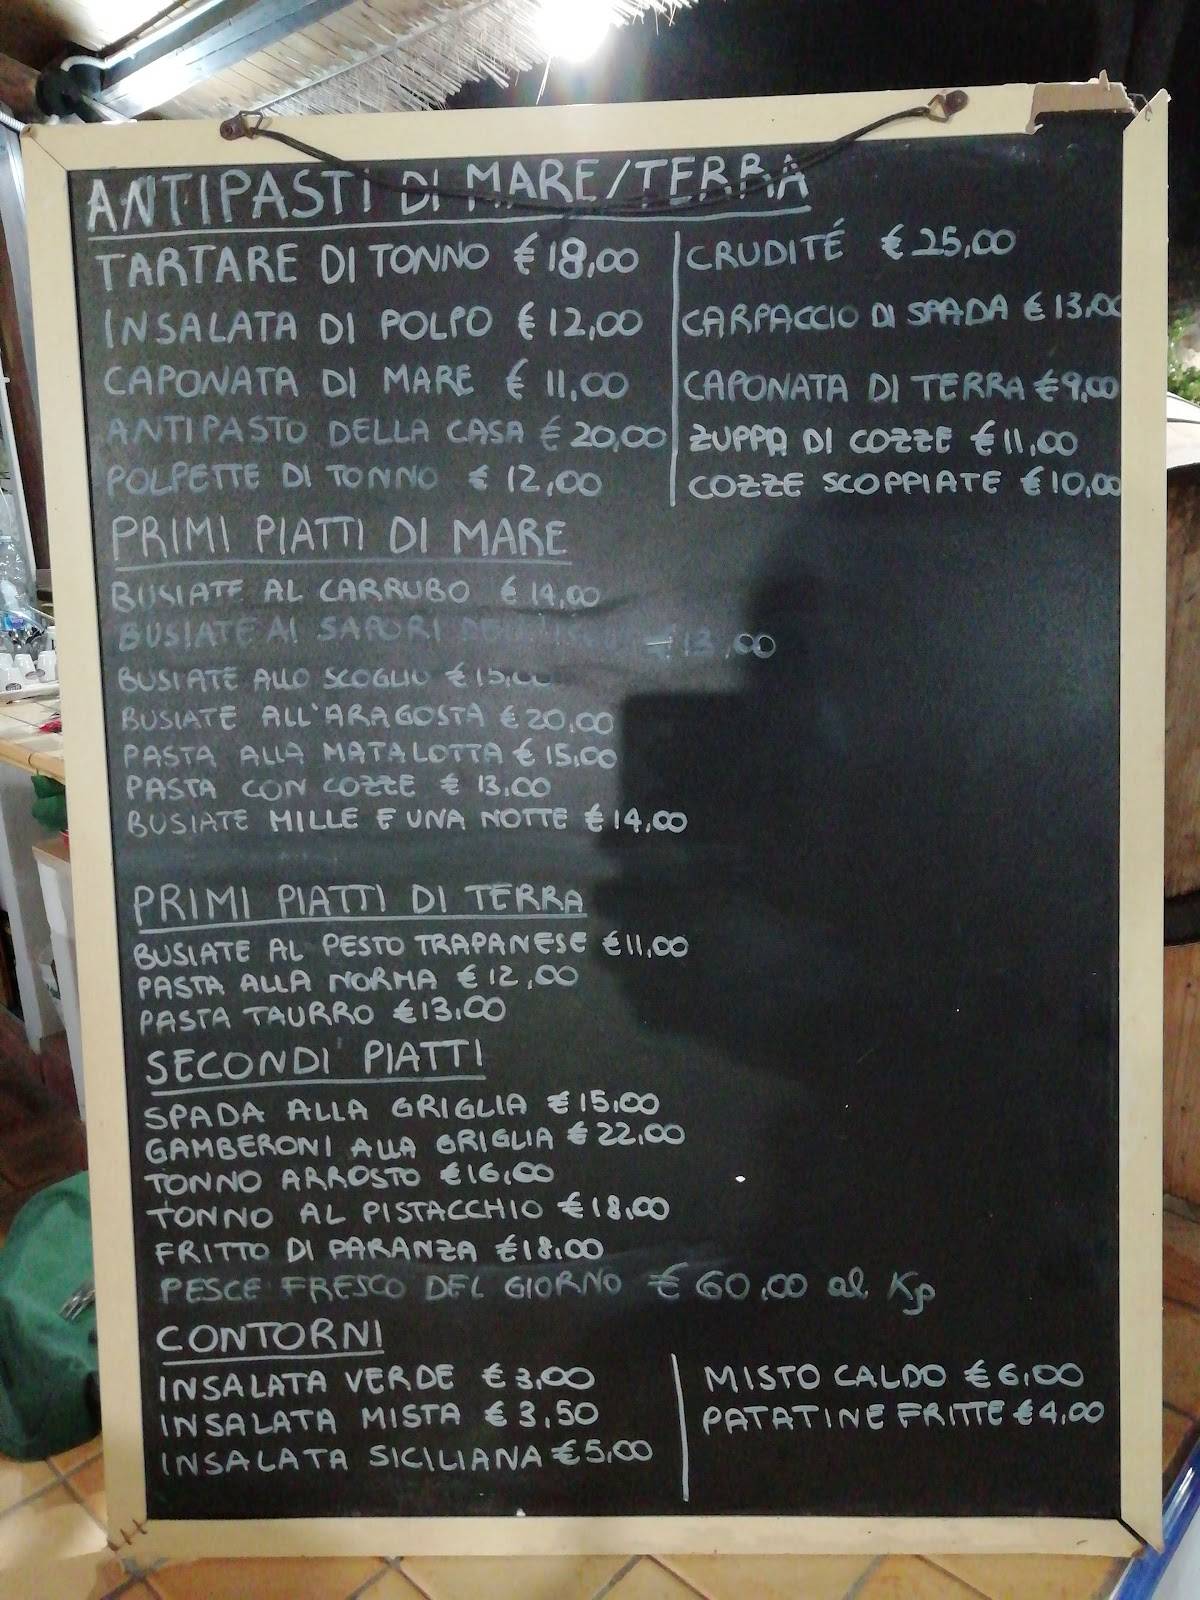 ANTIPASTI DI MARE/TERRA
TARTARE DI TONNO € 18,00
INSALATA DI POLPO € 12,00
CAPONATA DI MARE € 11,00
ANTIPASTO DELLA CASA € 20,00
POLPETTE DI TONNO € 12,00
CRUDITÉ € 25,00
CARPACCIO DI SPADA € 13,00
CAPONATA DI TERRA € 9,00
ZUPPA DI COZZE € 11,00
COZZE SCOPPIATE € 10,00
PRIMI PIATTI DI MARE
BUSIATE AL CARRUBO € 14,00
BUSIATE AI SAPORI € 13,00
BUSIATE ALLO SCOGLIO € 15,00
BUSIATE ALL'ARAGOSTA € 20,00
PASTA ALLA MATALOTTA € 15,00
PASTA CON COZZE € 13,00
BUSIATE MILLE E UNA NOTTE € 14,00
PRIMI PIATTI DI TERRA
BUSIATE AL PESTO TRAPANESE € 11,00
PASTA ALLA NORMA € 12,00
PASTA TAURRO € 13,00
SECONDI PIATTI
SPADA ALLA GRIGLIA € 15,00
GAMBERONI ALLA GRIGLIA € 22,00
TONNO ARROSTO € 16,00
TONNO AL PISTACCHIO € 18,00
FRITTO DI PARANZA € 18,00
PESCE FRESCO DEL GIORNO € 60,00 al Kg
CONTORNI
INSALATA VERDE € 3,00
INSALATA MISTA € 3,50
INSALATA SICILIANA € 5,00
MISTO CALDO € 6,00
PATATINE FRITTE € 4,00